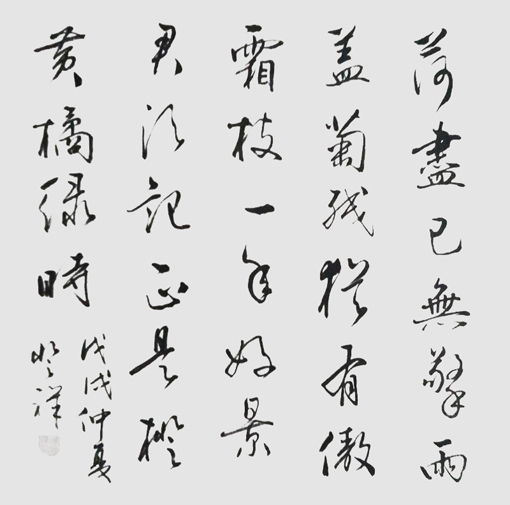 荷盡已無擎雨
蓋菊殘猶有傲
霜枝一年好景
君須記正是橙
黃橘綠時
戊戌仲夏
祥